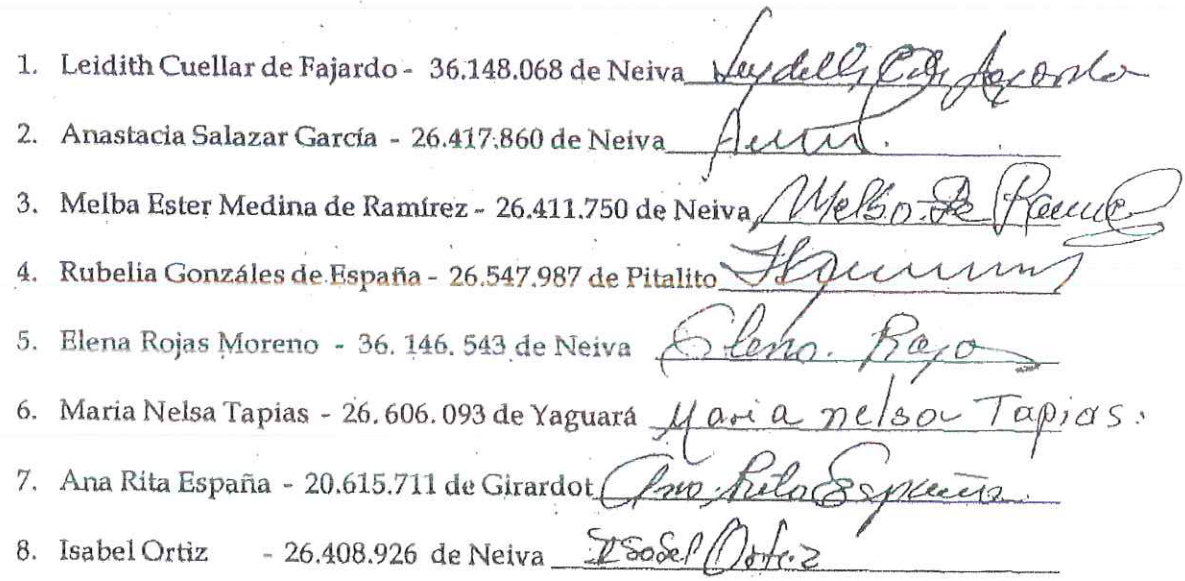 1. Leidith Cuellar de Fajardo - 36.148.068 de Neiva
2. Anastacia Salazar García - 26.417.860 de Neiva
3. Melba Ester Medina de Ramírez - 26.411.750 de Neiva
4. Rubelia Gonzáles de España - 26.547.987 de Pitalito
5. Elena Rojas Moreno - 36. 146. 543 de Neiva Elena. Rojas
6. Maria Nelsa Tapias - 26. 606. 093 de Yaguará Maria nelsa Tapias.
7. Ana Rita España - 20.615.711 de Girardot Ana Rita España
8. Isabel Ortiz - 26.408.926 de Neiva Isabel Ortiz